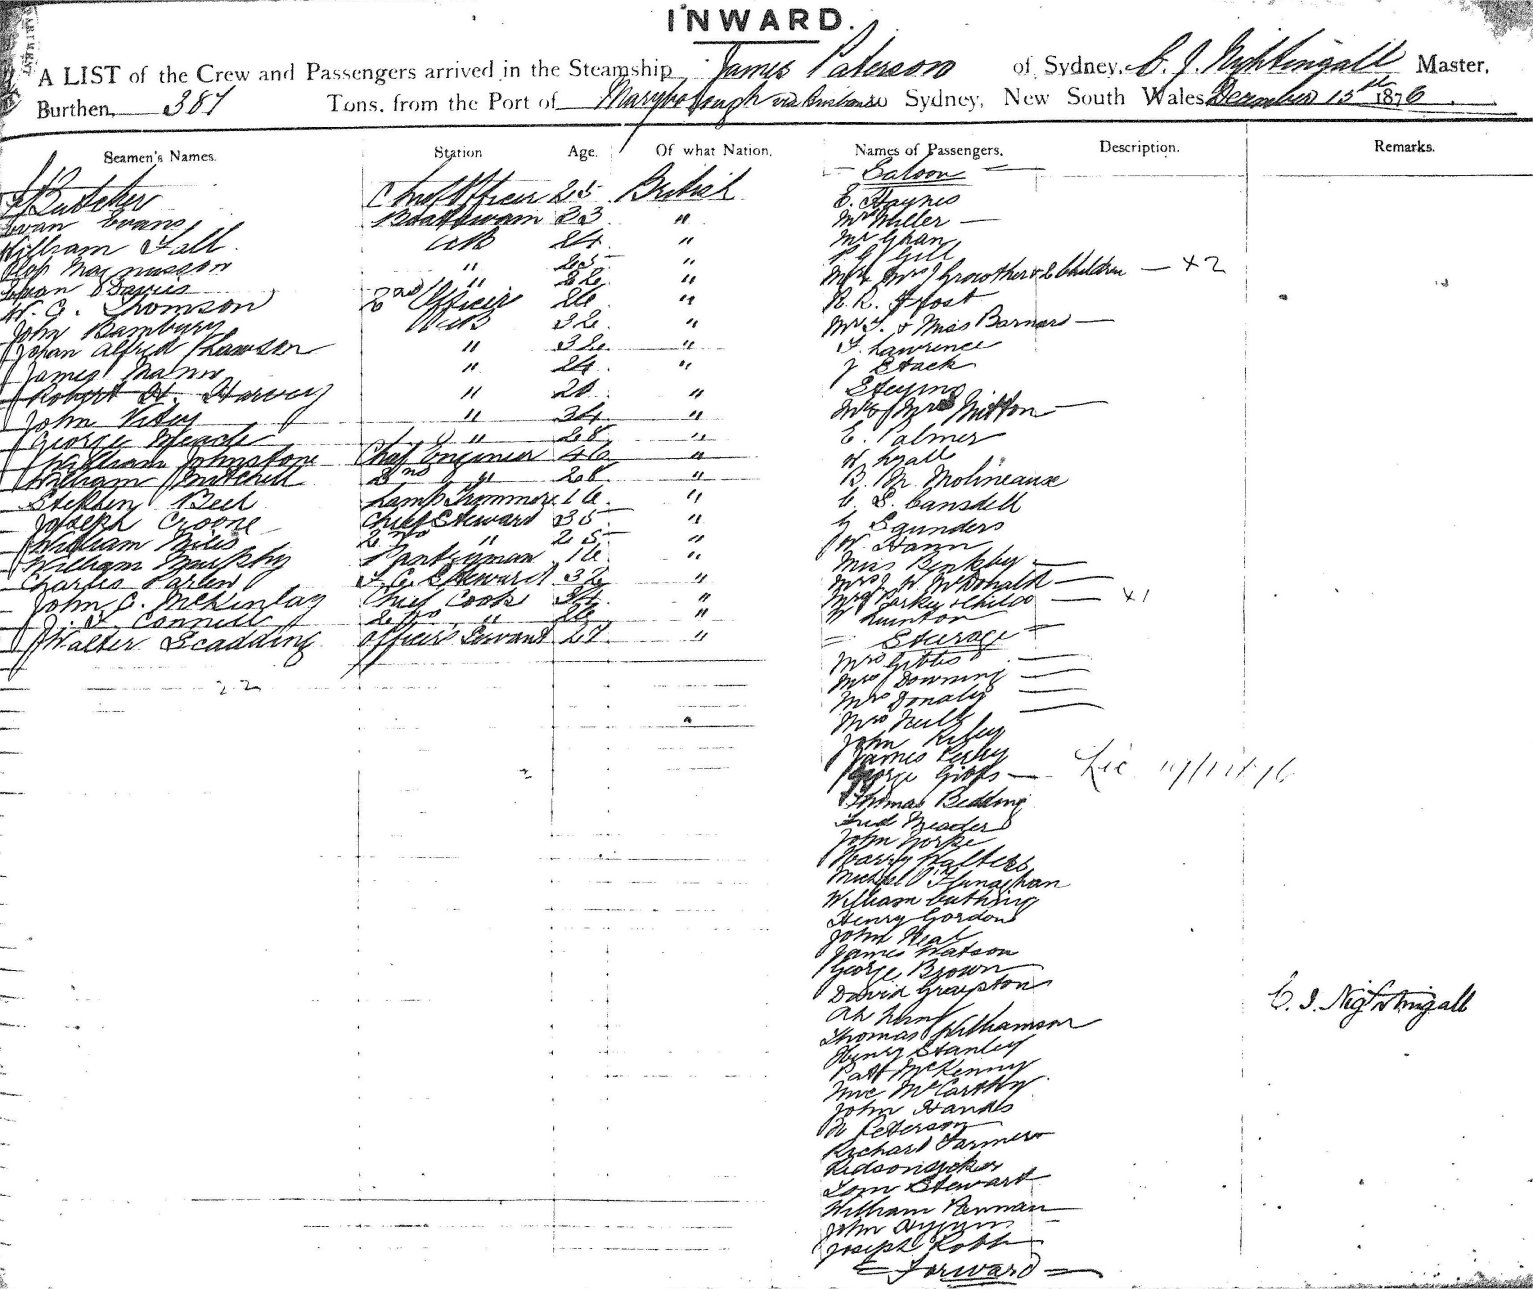 INWARD.
A LIST of the Crew and Passengers arrived in the Steamship James Paterson of Sydney, C. J. Nightingall Master,
Burthen, 387 Tons, from the Port of Maryborough via Brisbane Sydney, New South Wales December 15th 1876
Seamen's Names. Station Age. Of what Nation. Names of Passengers. Description. Remarks.
Butcher Chief Officer 25 British
Evan Evans Boatswain 33 "
William Fall AB 24 "
Magnusson " 25 "
Evan Davies " 22 "
W. C. Thomson 2nd Officer 26 "
John Bambury AB 32 "
Johan Alfred " 32 "
James Mann " 24 "
Robert H. Harvey " 20 "
John " 34 "
George Meade " 28 "
William Johnstone Chief Engineer 46 "
William Mitchell 2nd " 28 "
Stephen Bell Lamp Trimmer 16 "
Joseph Croone Chief Steward 35 "
William 2nd " 25 "
William Murphy Pantryman 16 "
Charles F. C. Steward 32 "
John C. McKinlay Chief Cook 34 "
J. F. 2nd " 26 "
Walter Scadding Officers Servant 27 "
22
Saloon
E. Haynes
Mrs Miller
Mr Ghan
Gill
Mr & Mrs J Growther & 2 Children x2
R. R. Frost
Mr F. & Miss Barnard
F. Lawrence
J Stack
Steyning
Mr & Mrs Mitton
E. Palmer
Lyall
B. M. Molineaux
C. E. Cansdell
G Saunders
W. Hann
Miss Benkby
Mrs J W McDonald
Mrs Parker & Child x1
W Quinton
Steerage
Mrs Gibbs
Mrs Downing
Mrs Donaly
Mrs
John Riley
James Perry
George Gibbs
Thomas Bedding
Fred Meader
John Yorke
Harry Walters
Michael O'Flanaghan
William Cuthring
Henry Gordon
John Neal
James Watson
George Brown
David Grapston
Ah
Thomas Williamson
Henry Stanley
Patt McKenny
Mic McCarthy
John Hands
N Peterson
Richard Farmer
Tom Stewart
William Penman
John
Joseph Robb
Forward
C. J. Nightingall